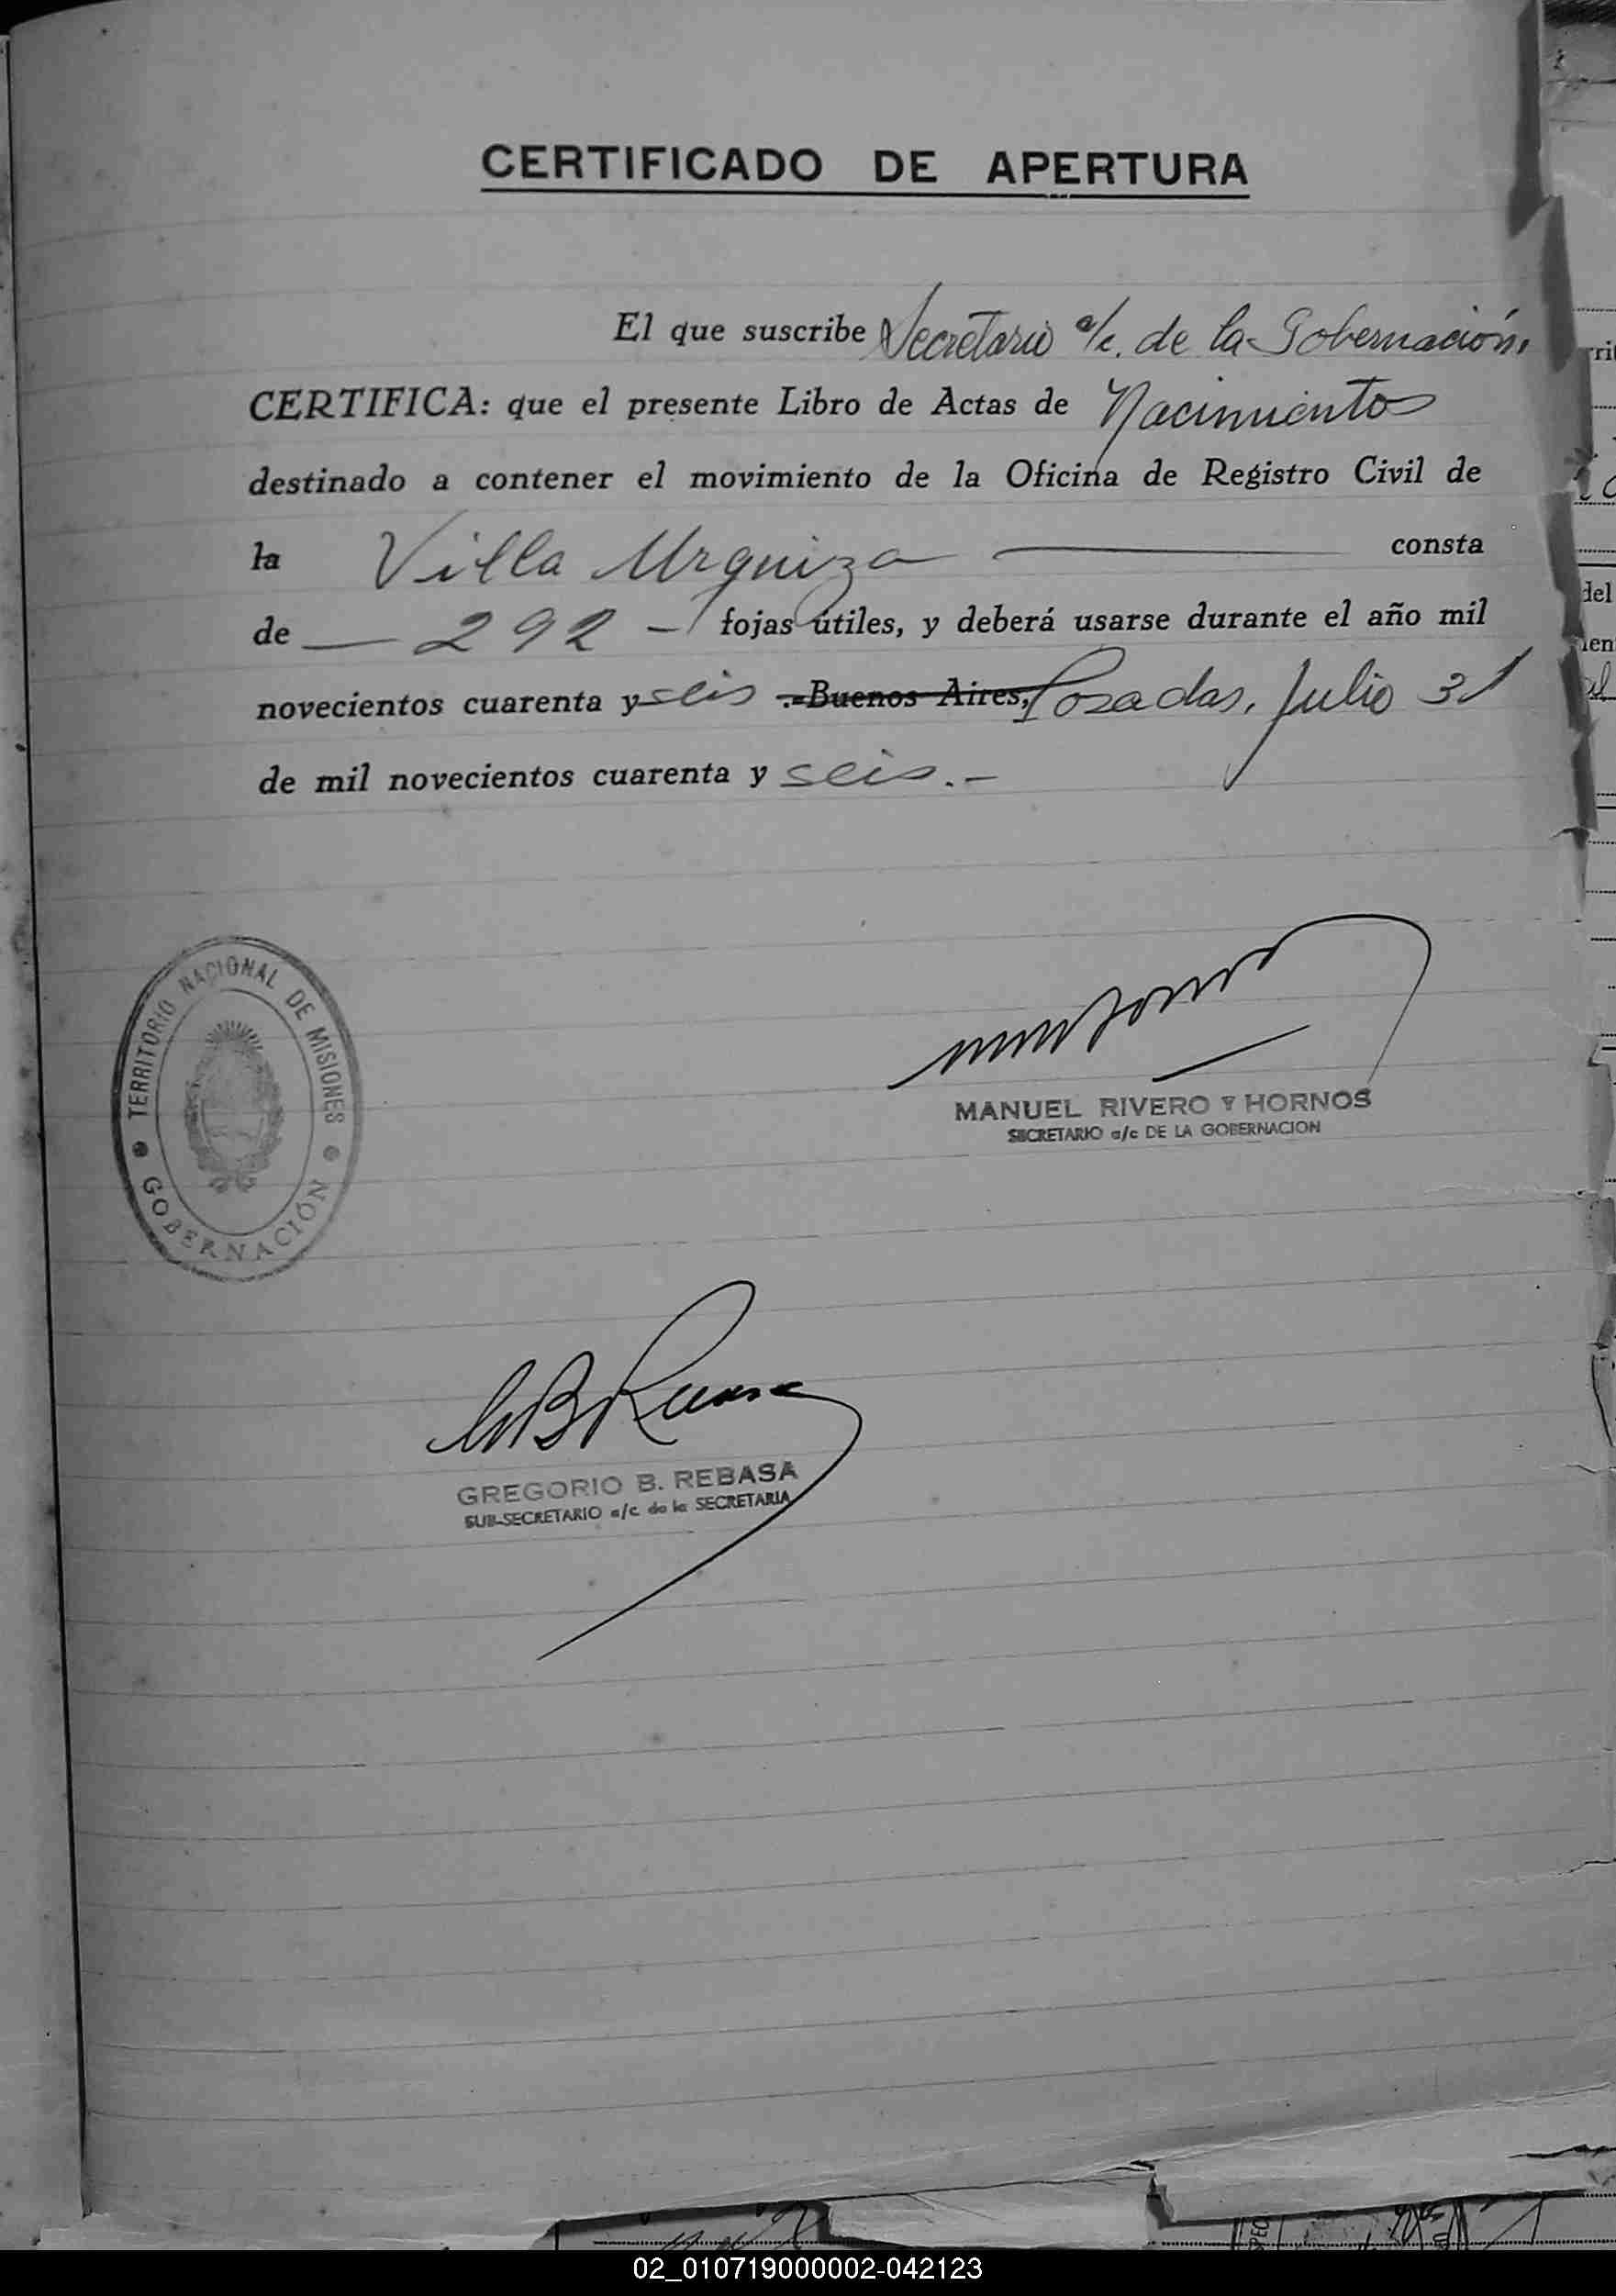 CERTIFICADO DE APERTURA
El que suscribe Secretario a/c. de la Gobernación,
CERTIFICA: que el presente Libro de Actas de Nacimientos
destinado a contener el movimiento de la Oficina de Registro Civil de
la Villa Urquiza consta
de — 292 — fojas útiles, y deberá usarse durante el año mil
novecientos cuarenta y seis .-Buenos Aires, Posadas, Julio 31
de mil novecientos cuarenta y seis.-
TERRITORIO NACIONAL DE MISIONES
GOBERNACIÓN
MANUEL RIVERO Y HORNOS
SECRETARIO a/c DE LA GOBERNACION
GREGORIO B. REBASA
SUB-SECRETARIO a/c de la SECRETARIA
02_010719000002-042123